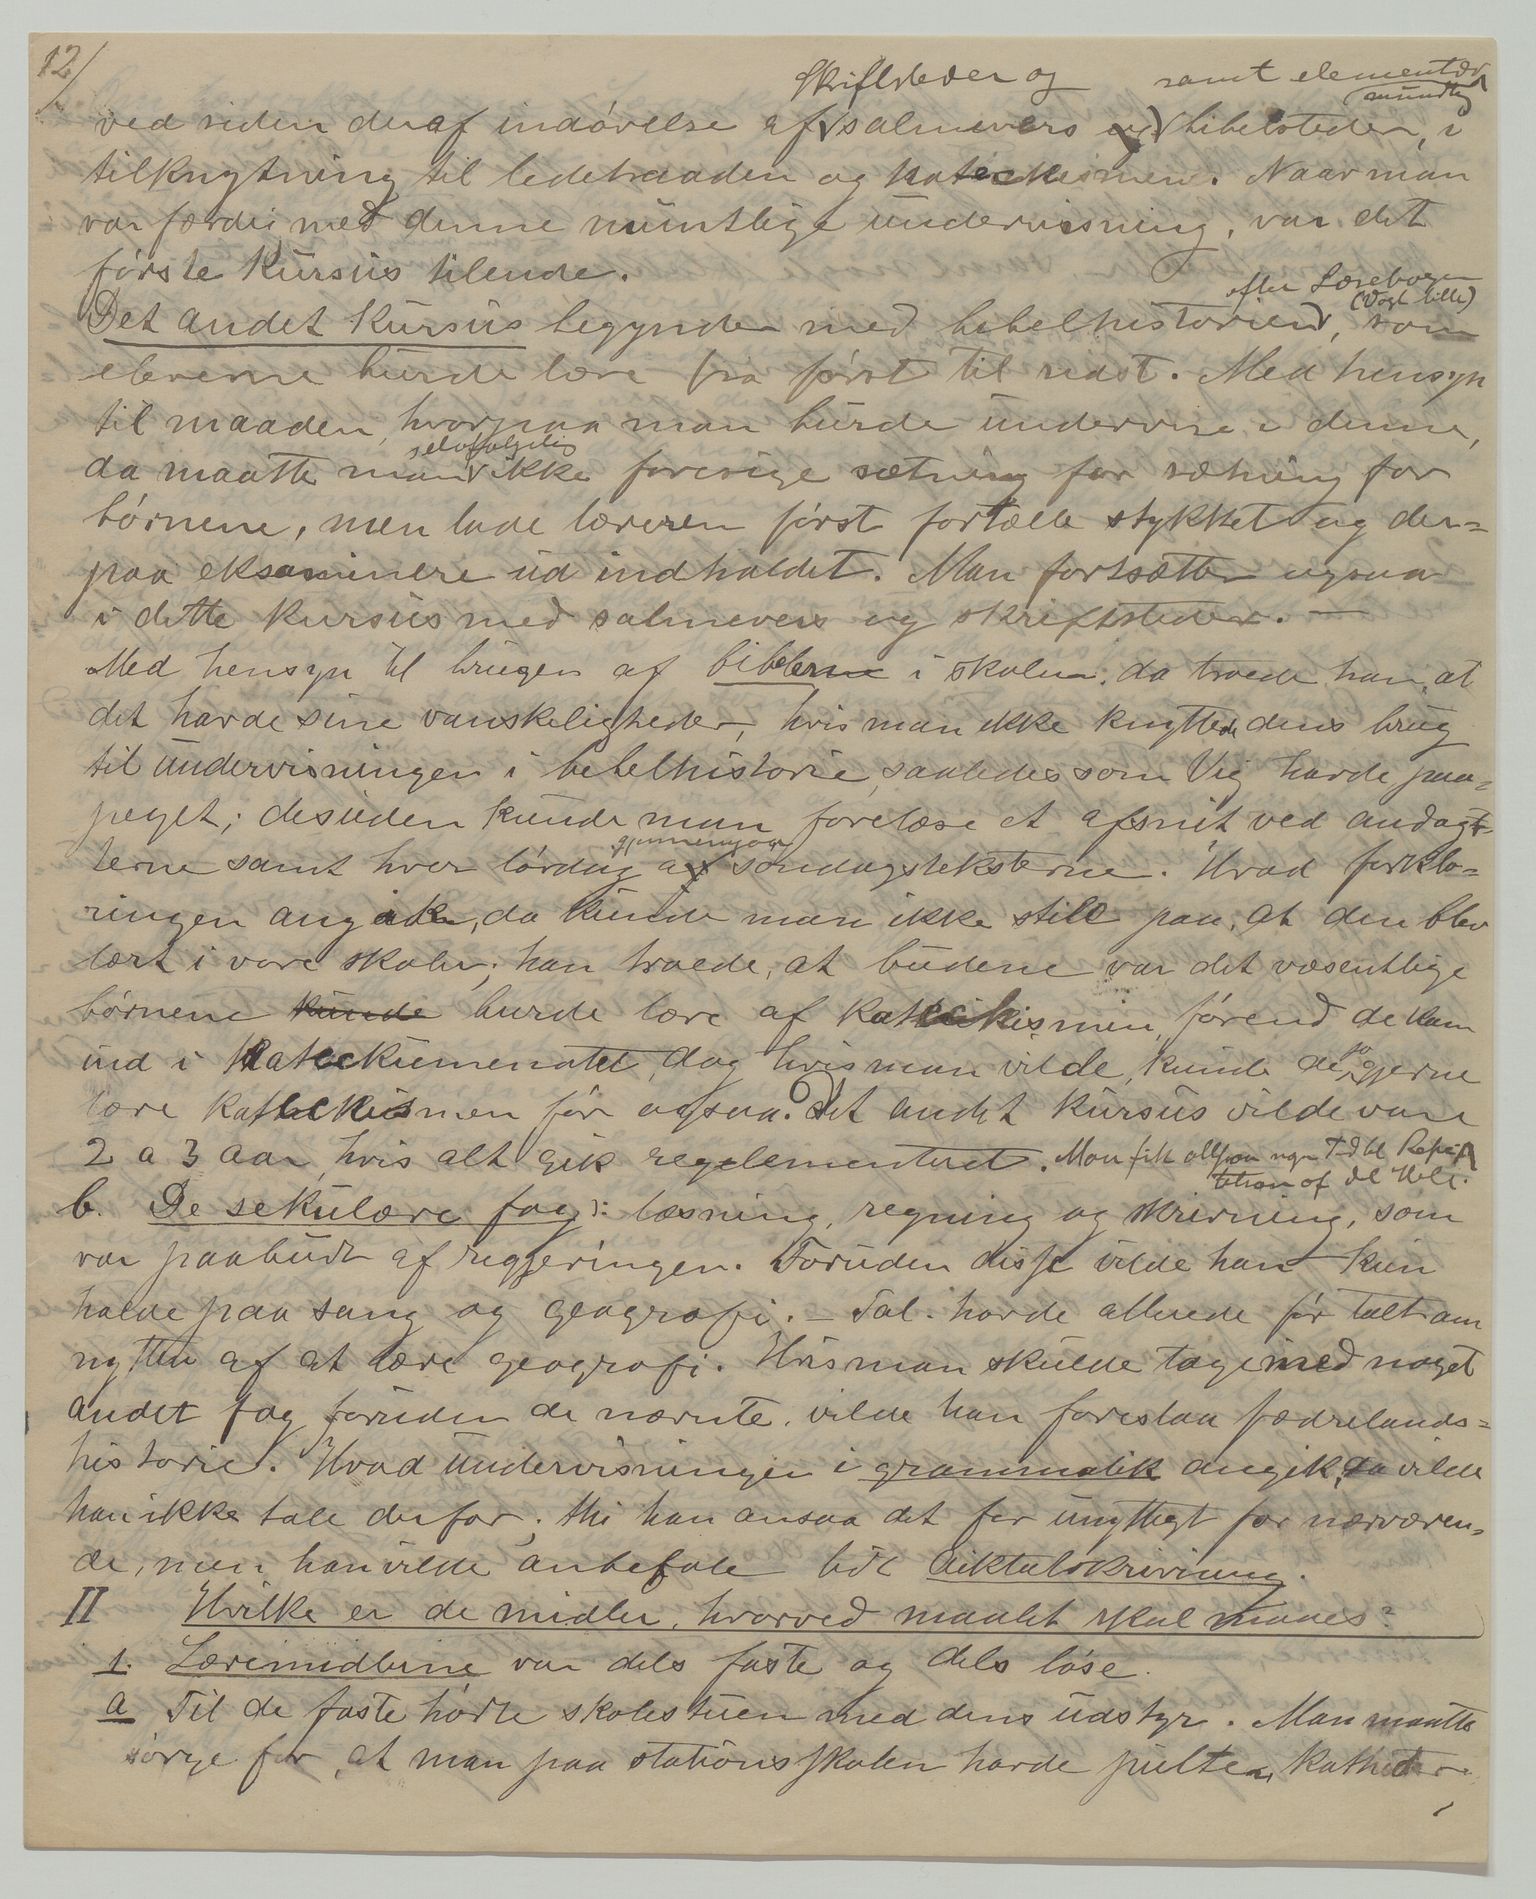 12/
Skriftsteder og samt elementær
mundtlig
ved siden deraf indøvelse af salmevers og bibelsteder, i
tilknytning til ledetraaden og katekismen. Naar man
var færdig med denne muntlige undervisning, var det
første kursus tilende.
efter Læsebogen
(Vogt lille)
Det andet kursus begynder med bibelhistorien, som
eleverne burde lære fra først til sidst. Med hensyn
til maaden, hvorpaa man burde undervise i denne,
selvfølgelig
da maatte man ikke foresige sætning for sætning for
børnene, men lade læreren først fortælle stykket og der=
paa eksaminere ud indholdet. Man fortsætter ogsaa
i dette kursus med salmevers og skriftsteder. —
Med hensyn til brugen af bibelen i skolen, da troede han, at
det havde sine vanskeligheder, hvis man ikke knyttede dens brug
til undervisningen i bibelhistorie, saaledes som Vig havde paa=
peget; desuden kunde man forelæse et afsnit ved andagt-
gjennemgaa
erne samt hver lørdag af søndagsteksterne. Hvad forkla=
ringen angik, da kunde man ikke stille paa, at den blev
lært i vore skoler; han troede, at budene var det væsentlige
børnene kunde burde lære af katekismen, førend de kom
ind i katekumenatet, dog hvis man vilde, kunde de jo gjerne
lære katekismen før ogsaa. Det andet kursus vilde vare
2 a 3 aar, hvis alt gik regelementeret. Man fik altsaa nogen Tid til Repe-
tition af det Hele.
b. De sekulære fag: læsning, regning og skrivning, som
var paabudt af reggjeringen. Foruden disse vilde han kun
holde paa sang og geografi. — Tal. havde allerede før talt om
nytten af at lære geografi. Hvis man skulde tage med noget
andet fag foruden de nævnte, vilde han foreslaa fædrelands=
historie. Hvad undervisningen i grammatik angik, da vilde
han ikke tale derfor; thi han ansaa det for unyttigt for nærværen=
de, men han vilde anbefale lidt diktatskrivning.
II Hvilke er de midler, hvorved maalet skal naaes?
1. Læremidlerne var dels faste og dels løse.
a Til de faste hørte skolestuen med dens udstyr. Man maatte
sørge for, at man paa stationsskolen havde pulter, katheder